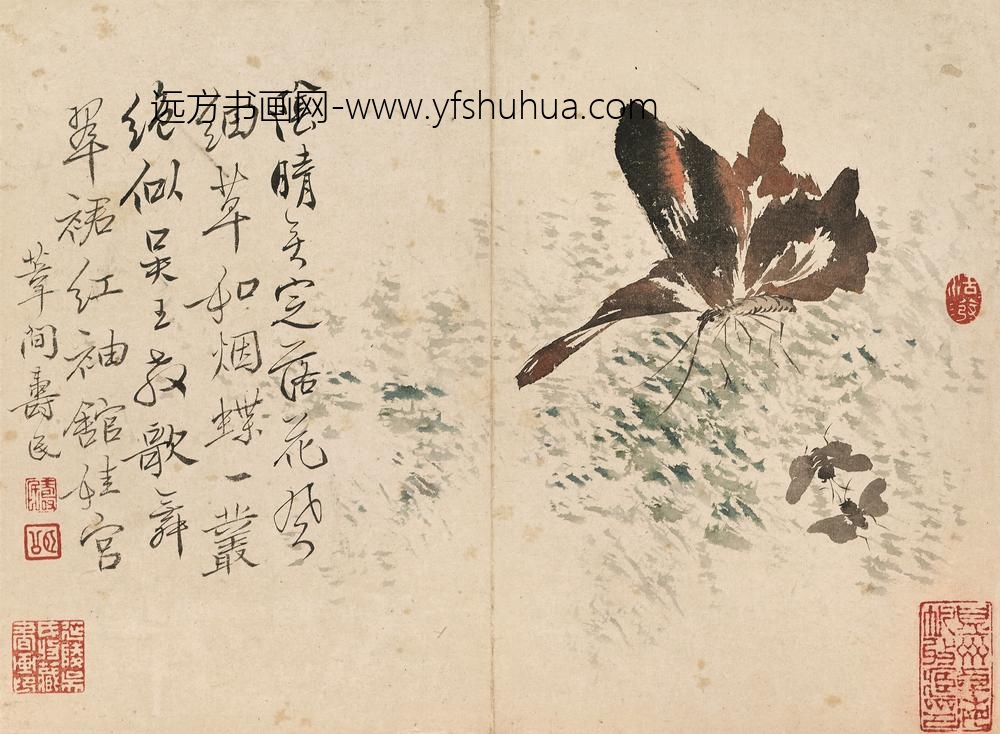 远方书画网-www.yfshuhua.com
陰晴無定落花風
細草和烟蝶一叢
絶似吴王教歌舞
翠裙紅袖舘娃宫
葦間壽民